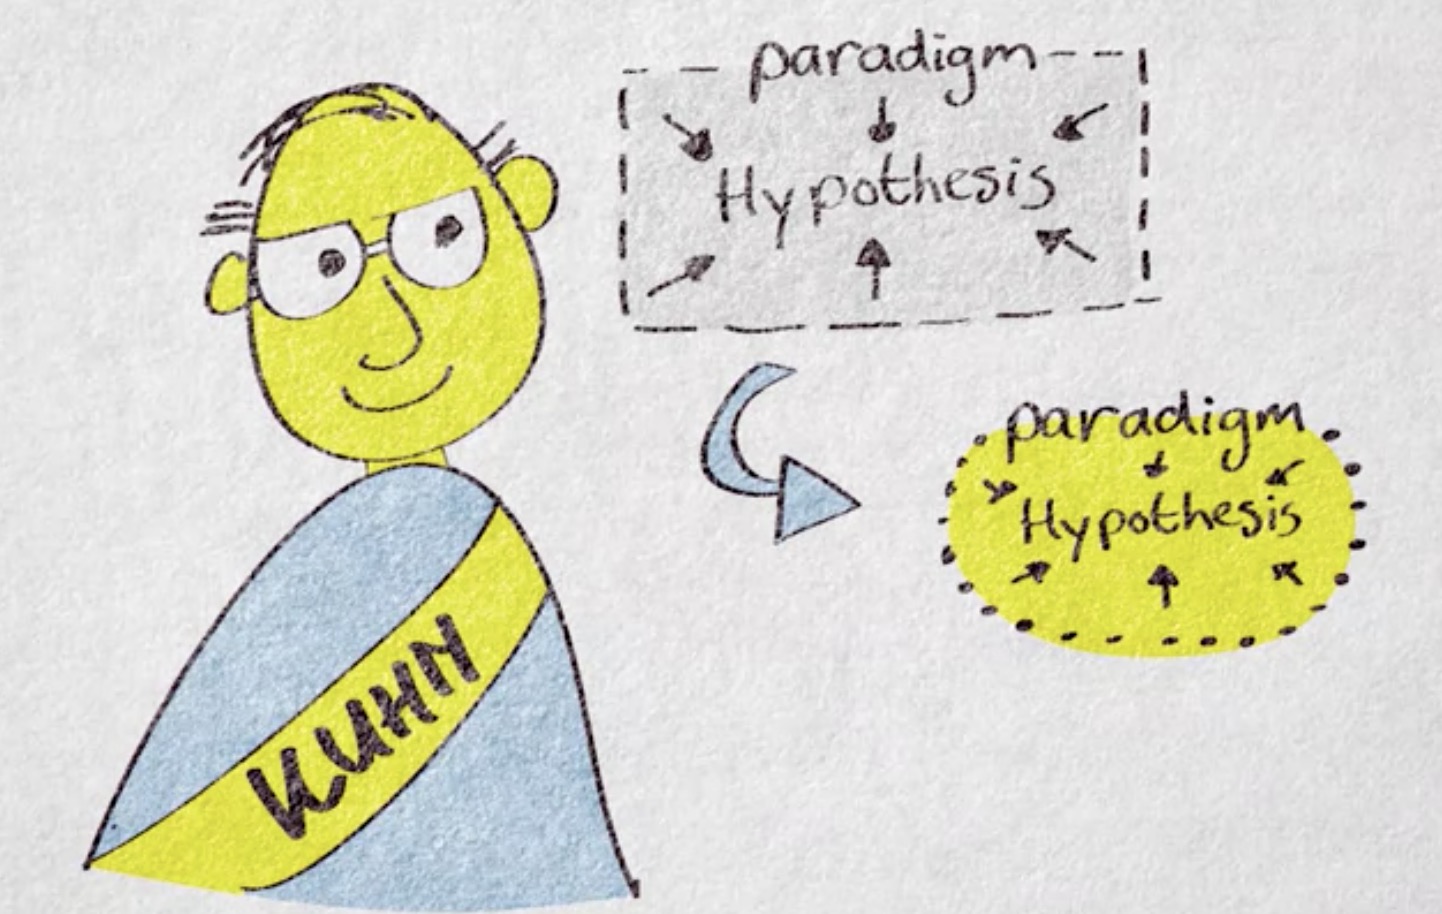 paradigm
Hypothesis
paradigm
Hypothesis
KUHN